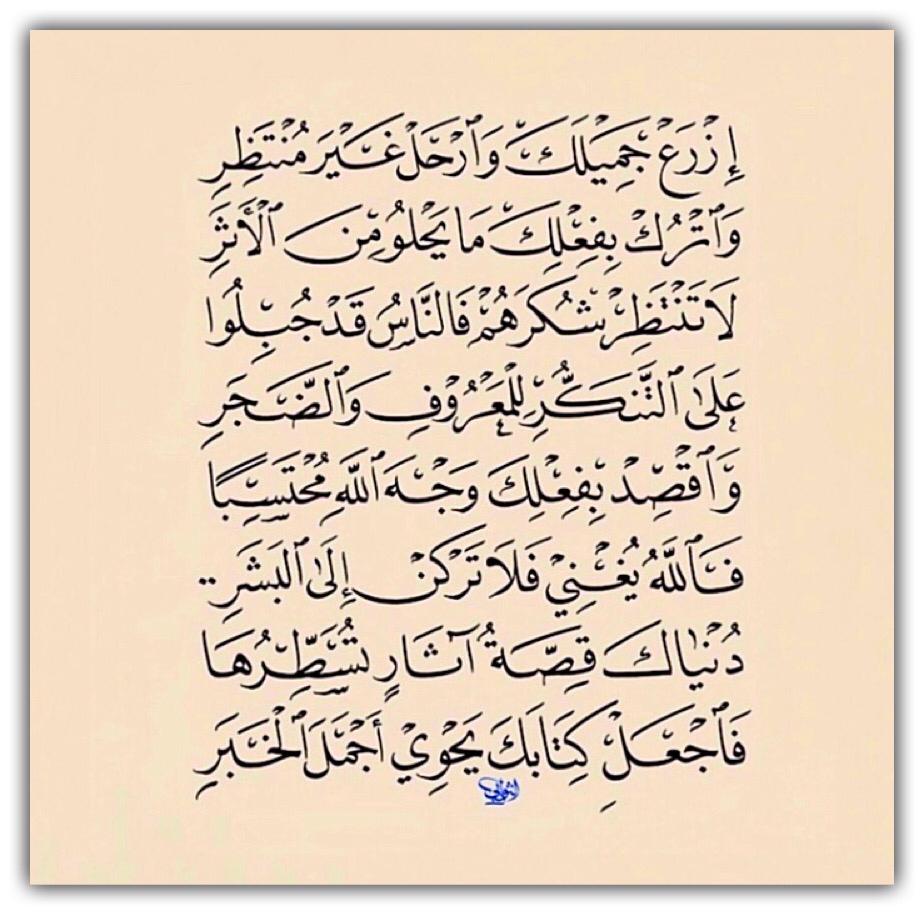 إِزْرَعْ جَمِيْلَكَ وَٱرْحَلْ غَيْرَ مُنْتَظِرِ
وَٱتْرُكْ بِفِعْلِكَ مَا يَحْلُو مِنَ ٱلْأَثَرِ
لَا تَنْتَظِرْ شُكْرَهُمْ فَالنَّاسُ قَدْ جُبِلُوا
عَلَىٰ ٱلتَّنَكُّرِ لِلْمَعْرُوْفِ وَٱلضَّجَرِ
وَٱقْصِدْ بِفِعْلِكَ وَجْهَ ٱللَّهِ مُحْتَسِبًا
فَٱللَّهُ يُغْنِيْ فَلَا تَرْكَنْ إِلَىٰ ٱلْبَشَرِ..
دُنْيَاكَ قِصَّةُ آثَارٍ تُسَطِّرُهَا
فَٱجْعَلْ كِتَابَكَ يَحْوِيْ أَجْمَلَ ٱلْخَبَرِ